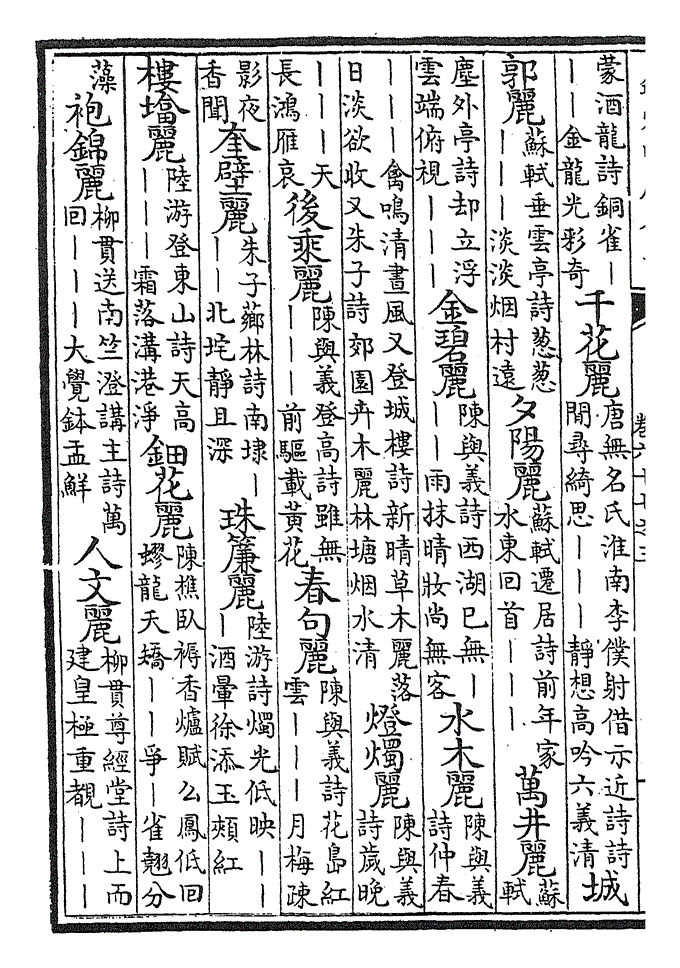 蒙酒龍詩銅雀｜
｜｜金龍光彩奇
千花麗
唐無名氏淮南李僕射借示近詩詩
閒尋綺思｜｜｜靜想高吟六義清
城
郭麗
蘇軾垂雲亭詩葱葱
｜｜｜淡淡烟村遠
夕陽麗
蘇軾遷居詩前年家
水東回首｜｜｜
萬井麗
蘇
軾
塵外亭詩却立浮
雲端俯視｜｜｜
金碧麗
陳與義詩西湖已無｜
｜｜雨抹晴妝尚無客
水木麗
陳與義
詩仲春
｜｜｜禽鳴清晝風又登城樓詩新晴草木麗落
日淡欲收又朱子詩郊園卉木麗林塘烟水清
燈燭麗
陳與義
詩歲晚
｜｜｜天
長鴻雁哀
後乘麗
陳與義登高詩雖無
｜｜｜前驅載黃花
春句麗
陳與義詩花島紅
雲｜｜｜月梅疎
影夜
香聞
奎壁麗
朱子薌林詩南埭｜
｜｜北垞靜且深
珠簾麗
陸游詩燭光低映｜｜
｜酒暈徐添玉頰紅
樓墖麗
陸游登東山詩天高
｜｜｜霜落溝港淨
鈿花麗
陳樵臥褥香爐賦么鳳低回
蟉龍天矯｜｜爭｜雀翹分
藻
袍錦麗
柳貫送南竺澄講主詩萬
回｜｜｜大覺鉢盂鮮
人文麗
柳貫尊經堂詩上而
建皇極重覩｜｜｜